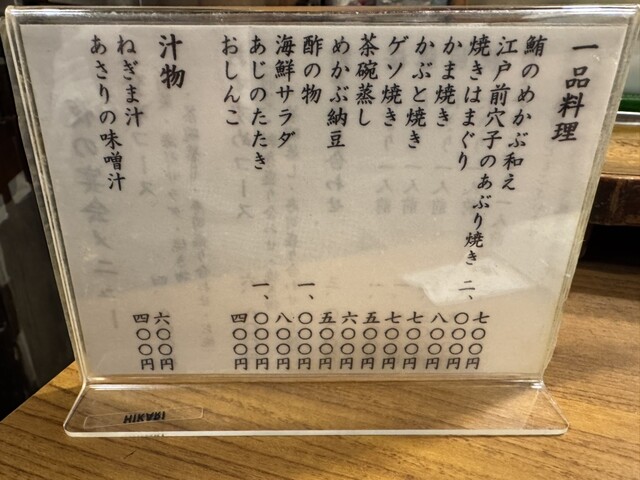 一品料理
鮪のめかぶ和え 七〇〇円
江戸前穴子のあぶり焼き 二、〇〇〇円
焼きはまぐり 八〇〇円
かま焼き 七〇〇円
かぶと焼き 七〇〇円
ゲソ焼き 五〇〇円
茶碗蒸し 六〇〇円
めかぶ納豆 五〇〇円
酢の物 一、〇〇〇円
海鮮サラダ 八〇〇円
あじのたたき 一、〇〇〇円
おしんこ 四〇〇円
汁物
ねぎま汁 六〇〇円
あさりの味噌汁 四〇〇円
HIKARI